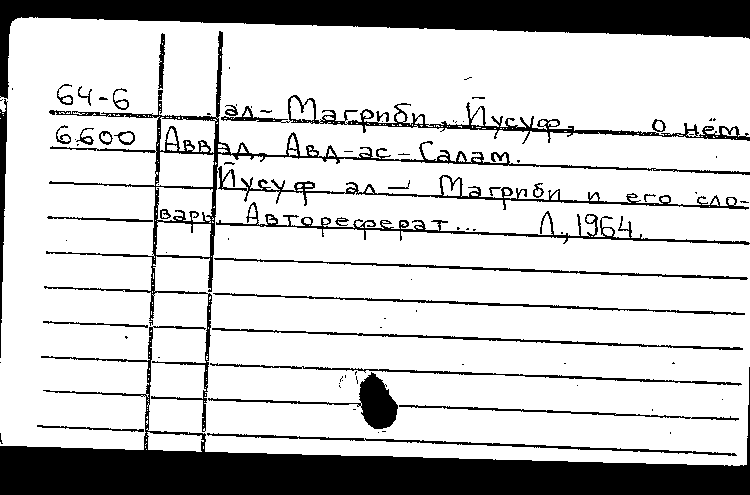 64-6 ал- Магриби, Йусуф, о нём.
6600 Аввад, Авд-ас-Салам.
Йусуф ал- Магриби и его сло-
варь. Автореферат... Л., 1964.